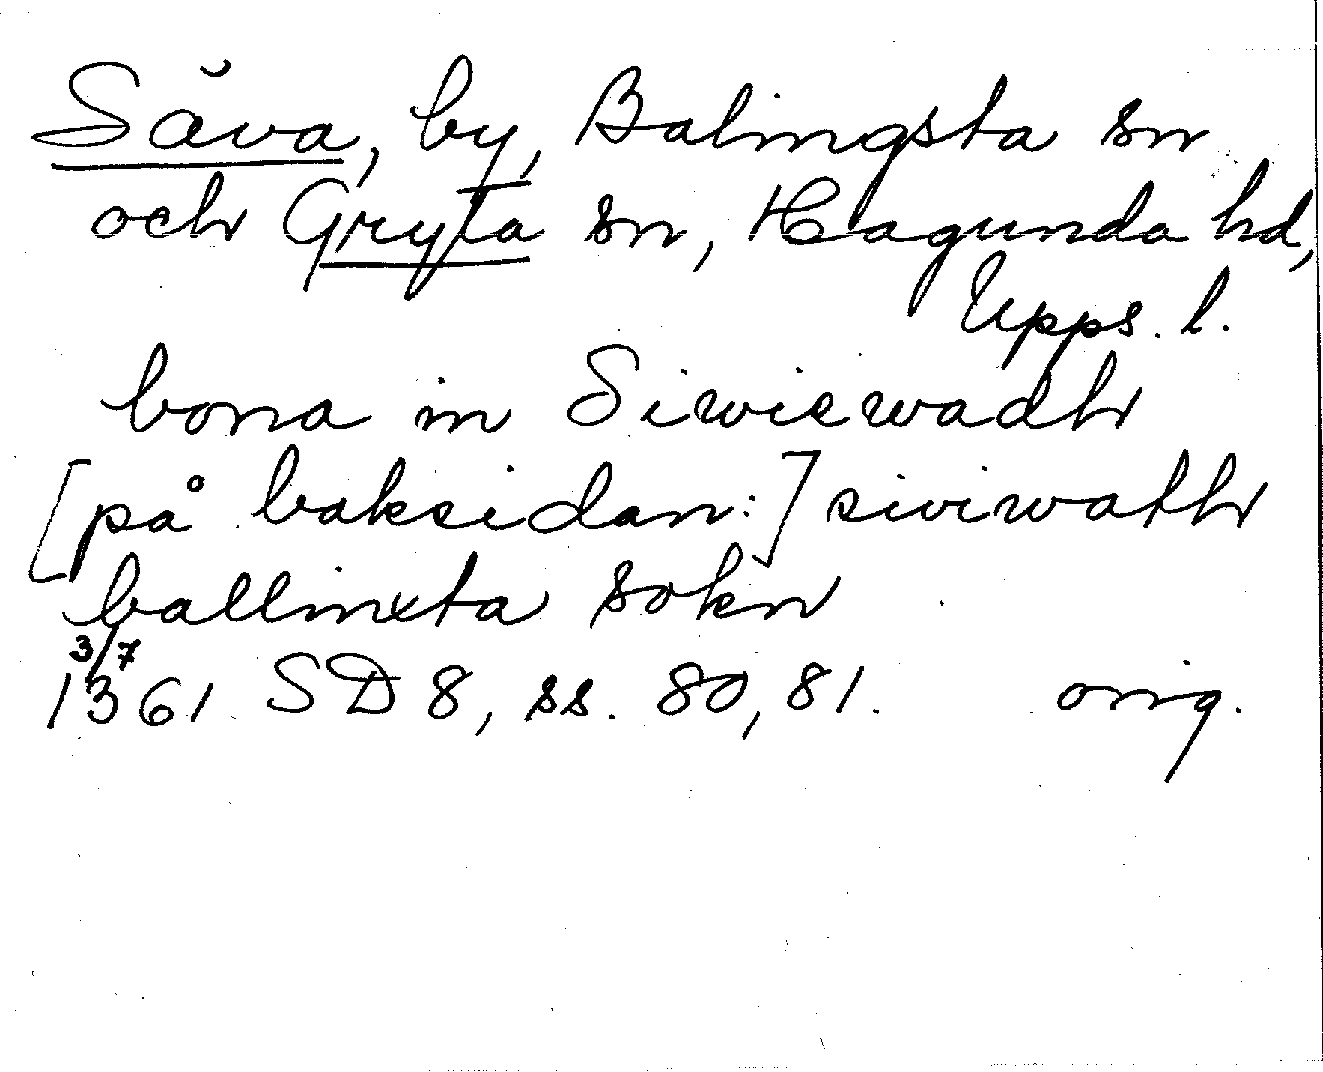 Säva, by, Balingsta sn
och Gryta sn, Hagunda hd,
Upps. l.
bona in Siwiewadh
[på baksidan:] siviwath
ballinxta sokn
3/7
1361 SD 8, ss. 80, 81. orig.